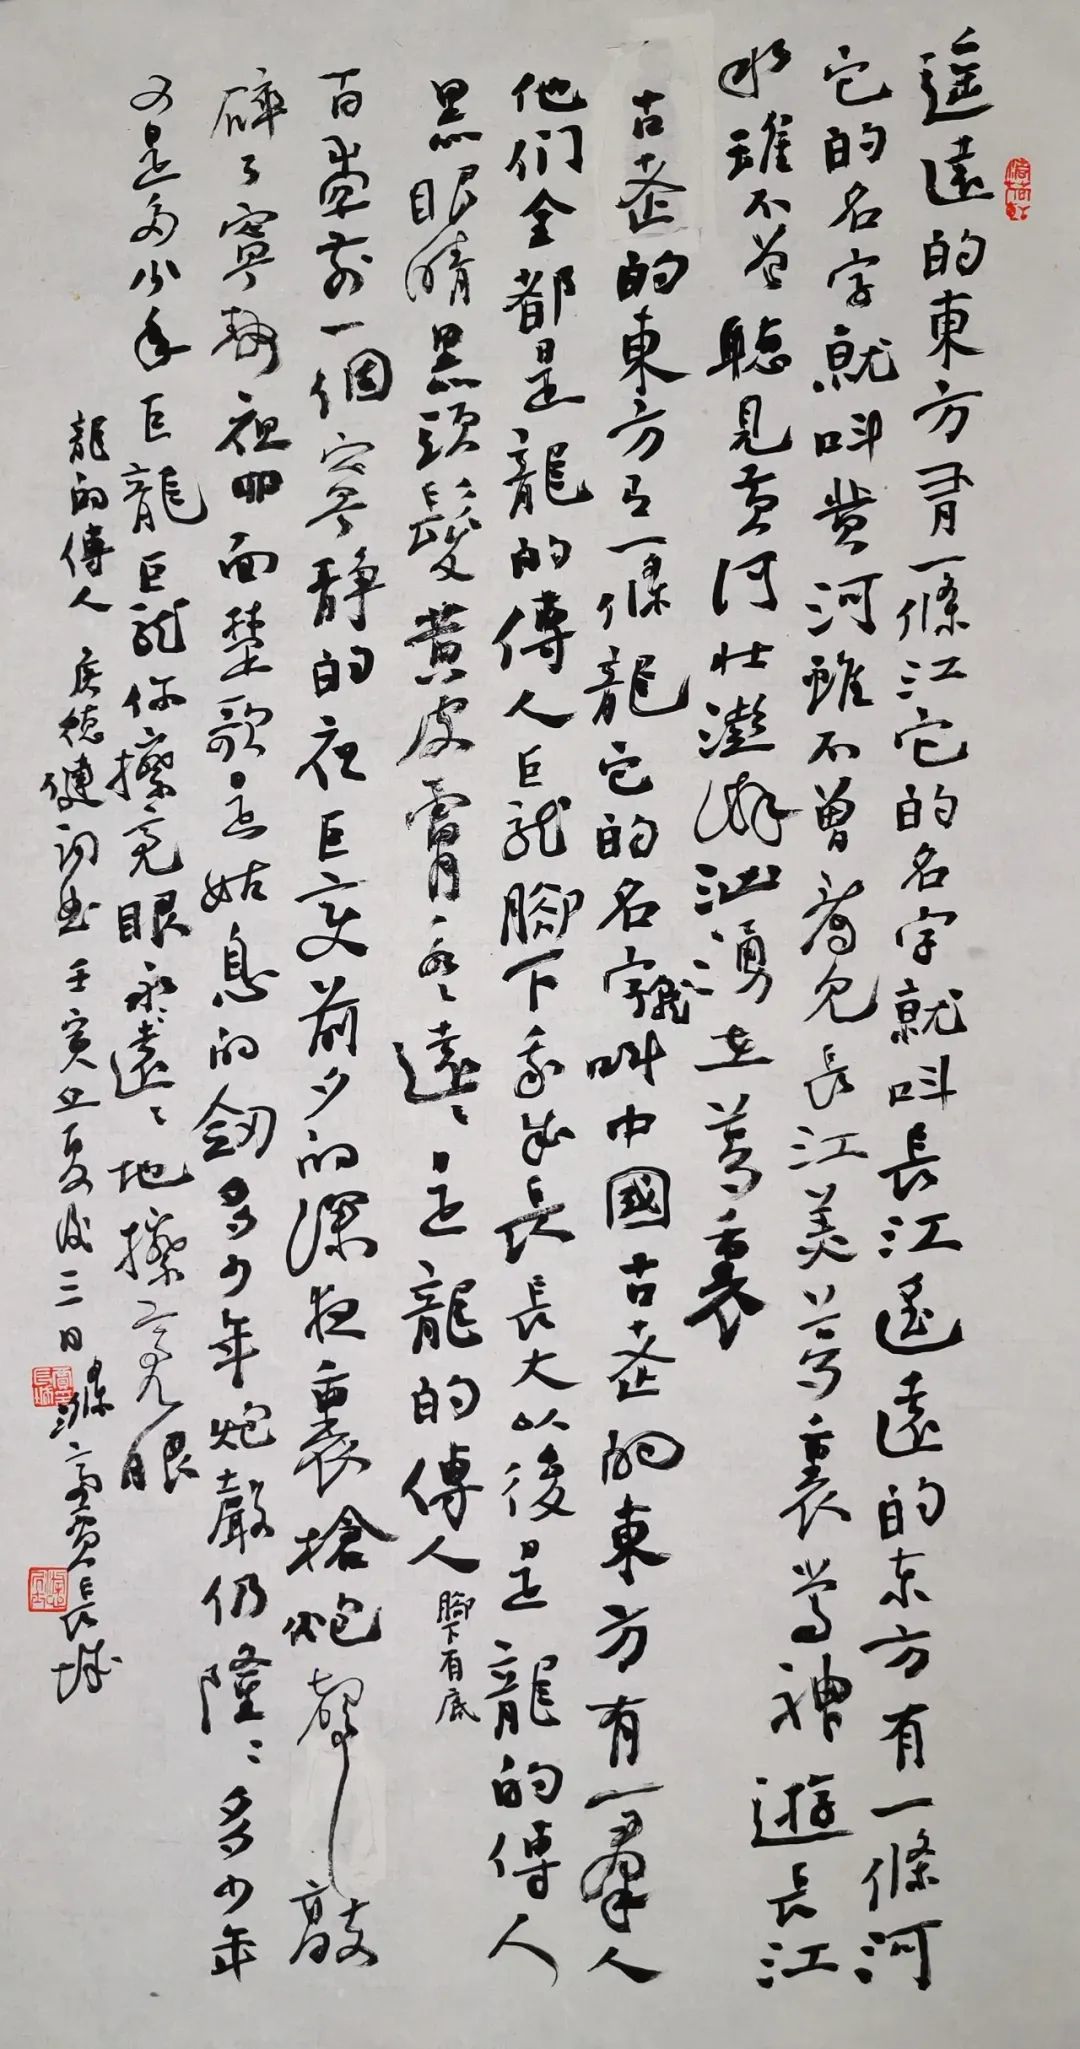 遥遠的東方有一條江它的名字就叫長江遥遠的东方有一條河
它的名字就叫黄河雖不曾看見長江美夢裏常神遊長江
水雖不曾聽見黄河壯澎湃洶湧在夢裏
古老的東方有一條龍它的名字就叫中國古老的東方有一羣人
他们全都是龍的傳人巨龍腳下我成長長大以後是龍的傳人
黑眼睛黑頭髮黄皮膚永遠遠是龍的傳人
腳下有底
百年前一個寧静的夜巨变前夕的深夜裏槍炮聲敲
碎了寧静夜四面楚歌是姑息的劍多少年炮聲仍隆隆多少年
又是多少年巨龍巨龍你擦亮眼永遠遠地擦亮眼
龍的傳人 侯德健詞曲 壬寅立夏後三日
長城